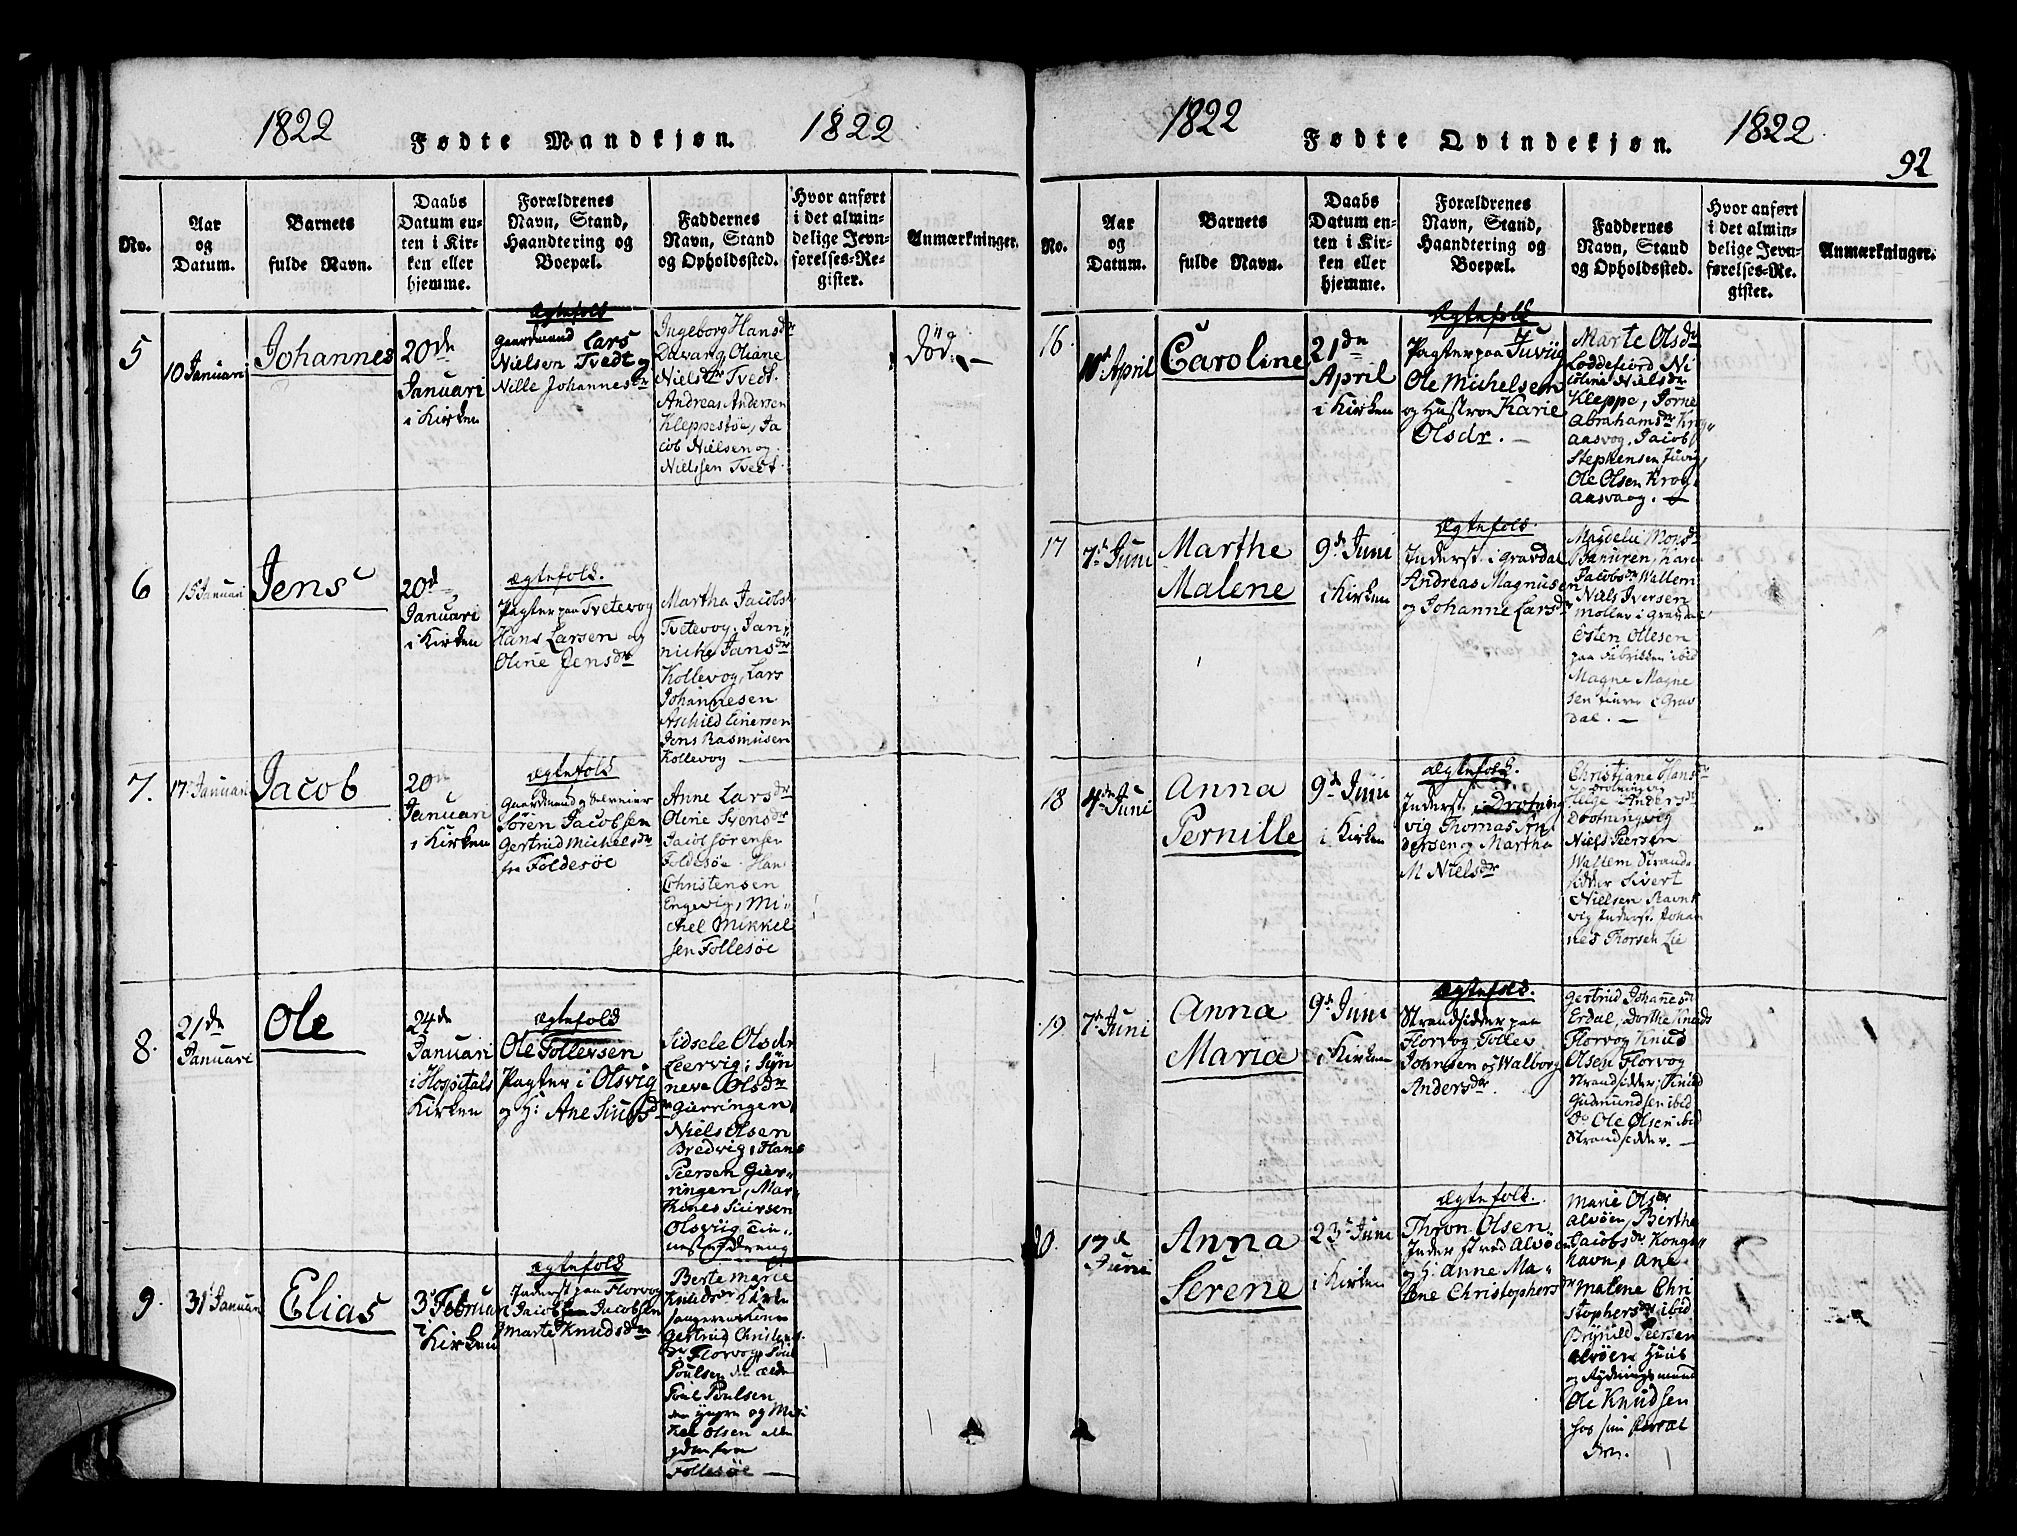 1822
Fødte Mandkjøn.
1822
No.
Aar
og
Datum.
Barnets
fulde Navn.
Daabs
Datum en-
ten i Kir-
ken eller
hjemme.
Forældrenes
Navn, Stand,
Haandtering og
Boepæl.
Faddernes
Navn, Stand
og Opholdssted.
Hvor anført
i det almin-
delige Jevn-
førelses-Re-
gister.
Anmærkninger.
5
10 Januari
Johannes
20de
Januari
i Kirken
Ægtefold
Gaardmand Lars
Nielsen Tvedt og
Nille Johannesdr
Ingeborg Hansdr
Davang, Oliane
Nielsdr Tvedt.
Andreas Andersen
Kleppestöe, Ja
cob Nielsen og
Nielssen Tvedt.
död. —
6
15 Januari
Jens
20d
Januari
i Kirken
Ægtefold.
Pagter paa Tvetevog
Hans Larsen og
Oline Jensdr
Martha Jacobs
Tvetevog. Jan
niche Jansdr
Kollevog, Lars
Johannesen
Aschild Einersen
Jens Rasmusen
Kollevog
7.
17 Januari
Jacob
20
Januari
i Kirken
Ægtefold
Gaardmand og Selveier
Sören Jacobsen
Gertrud Michelsdr
fra Foldesöe
Anne Larsdr
Oline Svensdr
Jacob Sörensen
Foldesöe. Han
Christensen
Engevig, Mi
chel Mikkel
sen Follesöe
8.
21de
Januari
Ole
24de
Januari
i Hospitals
Kirken
Ægtefold
Ole Tollefsen
Pagter i Olsvig
og H: Ane Siursdr
Sidsele Olsdr
Leervig; Syn
neve Olsdr
Gierringen,
Niels Olsen
Bredvig; Hans
Peersen Gier
ringen, Mar
Kines Siursen
Olsviig Tie-
nestedreng
9.
31 Januari
Elias
3 Februari
i
Kirken
Ægtefold
Inderst paa Florvog
Jacob Jacobsen
Marte Knudsdr
Berte Marie
Knudsdr Kirke
sangerens Kone
Gertrud Christens
dr Florvog,
Poulsen den ælde
Poul Poulsen
den yngre og Mi
kel Olsen alle
ydem fra
Follesöe —
1822
Fødte Qvindekjøn.
1822
92
No.
Aar
og
Datum.
Barnets
fulde Navn.
Daabs
Datum en-
ten i Kir-
ken eller
hjemme.
Forældrenes
Navn, Stand,
Haandtering og
Boepæl.
Faddernes
Navn, Stand
og Opholdssted.
Hvor anført
i det almin-
delige Jevn-
førelses-Re-
gister.
Anmærkninger.
16.
April
Caroline
21de
April
i Kirken
Ægtefold
Pagter paa Juviig
Ole Michelsen
og Hustroe Karie
Olsdr. —
Marte Olsdr
Loddefiord Ni
coline Nielsdr
Kleppe, Jorne
Abrahamsdr Krog
aasvog. Jacob
Stephensen Juvig
Ole Olsen Krog
aasvaag. —
17
7de Juni
Marthe
Malene
9de Juni
i Kirken
Ægtefold.
Inderst i Gravdal
Andreas Magnusen
og Johanne Larsdr
Magdeli Monsdr
Jacobsdr Wallem
Niels Iversen
Möller i Gravdal
Osten Ollesen
paa Fabrikken ibid
Magne Magne
sen i Grav
dal. —
18
4de Juni
Anna
Pernille
9de Juni
i Kirken
Ægtefold.
Inderst i Drotning
vig Thomas An
dersen og Martha
M Nielsdr
Christiane Hansdr
Drotningvig
Andersdr
Drotningvig
Niels Peersen
Wallem Strand
sidder Sivert
Nielsen Ravn
vig Inderst. Johan
nes Thorsen Lie
19
7de Juni
Anna
Maria
9de Juni
i Kirken
Ægtefold.
Strandsidder paa
Florvog Tollev
Johnsen og Walborg
Andersdr
Gertrud Johannesd
Erdal, Dorthe Knuds
Florvog Knud
Olsen Florvog
Strandsidder; Knud
Gudmundsen ibid
Do Ole Olsen ibid
Strandsidder. —
20.
17d
Juni
Anna
Serene
23 Juni
i Kirken
Ægtefold.
Olsen
Inderst ved Alvöen
og H: Anne Ma
lene Christophersdr
Marie Olsdr
Alvöen, Birthe
Jacobsdr Konge
havn, Ane
Malene Chri
stophersdr ibid
Brynild Peersen
Alvöen Huus
og Rydningsmand
Ole Knudsen